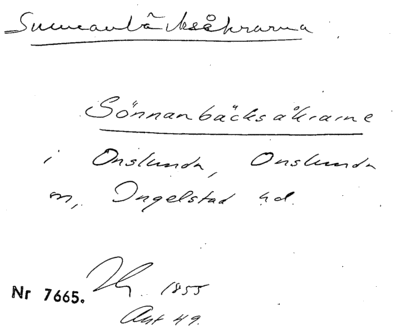 Sunnanbäcksåkrarna
Sönnanbäcksåkrarne
i Onslunda, Onslunda
sn, Ingelstad hd.
Nr 7665. 1855
Akt 49.